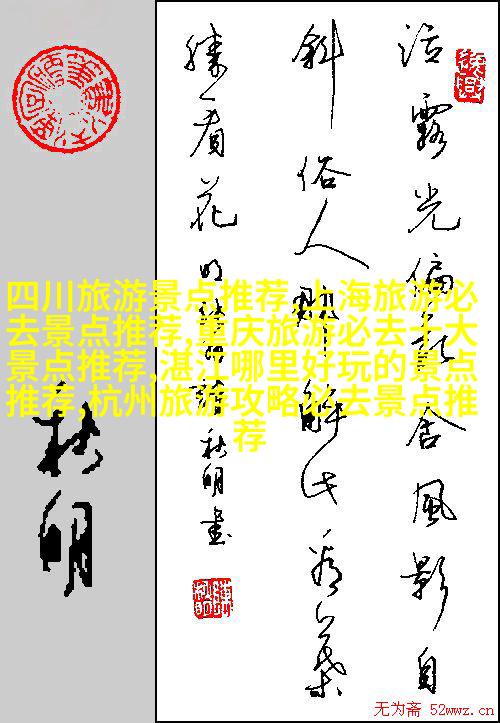 沾露光偏乱含风影自
斜俗人那解此看叶
胜看花
秋明书
秋明
四川旅游景点推荐,上海旅游必
去景点推荐,重庆旅游必去十大
景点推荐,湛江哪里好玩的景点
推荐,杭州旅游攻略必去景点推
荐
无为斋 52wwz.cn